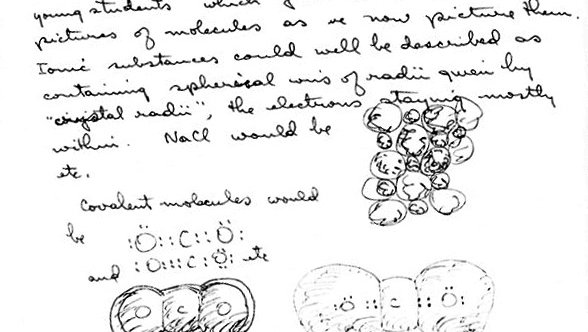 young students which
pictures of molecules as we now picture them.
Ionic substances could well be described as
containing spherical ions of radii given by
"crystal radii", the electrons staying mostly
within. NaCl would be
etc.
Covalent molecules would
be :Ö::C::Ö:
and :O:::C:Ö: etc
O C O
:Ö::C::Ö: